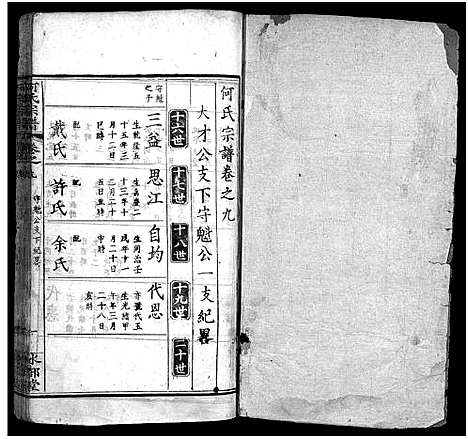 何氏宗譜卷之九
大才公支下守魁公一支紀畧
十六世
十七世
十八世
十九世
二十世
守魁之子
三益
生乾隆五十五年三月十二日巳時
配
戴氏
思江
生嘉慶二十三年十二月二十五日丑時
配
許氏
自均
生同治壬戌年十一月二十日守時
配
余氏
代恩
字號代五
生光緒甲午年三月二十八日
亥時
何氏宗譜
卷之九
守魁公支下紀畧
一
水部堂